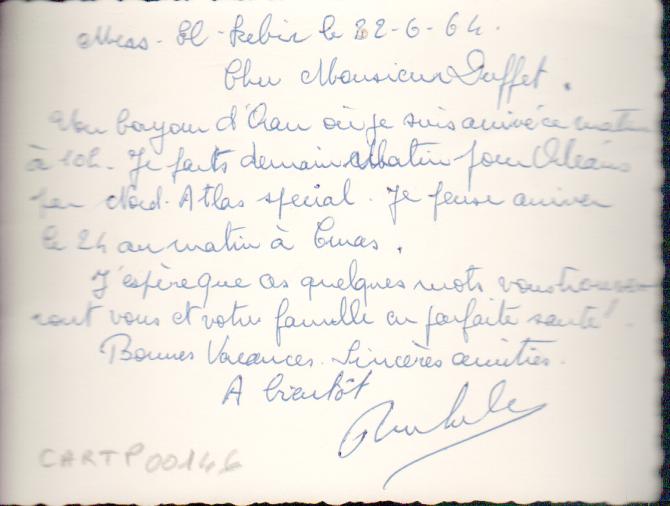 Mess - El - Kebir le 22-6-64.
Cher Monsieur Duffet.
Un bonjour d'Oran où je suis arrivé ce matin
à 10h. Je parts demain Matin pour Orléans
par Nord-Atlas spécial. Je pense arriver
le 24 au matin à
J'espère que ces quelques mots vous trouve
ront vous et votre famille en parfaite santé!
Bonnes Vacances. Sincères amitiés.
A bientôt
CARTP00146